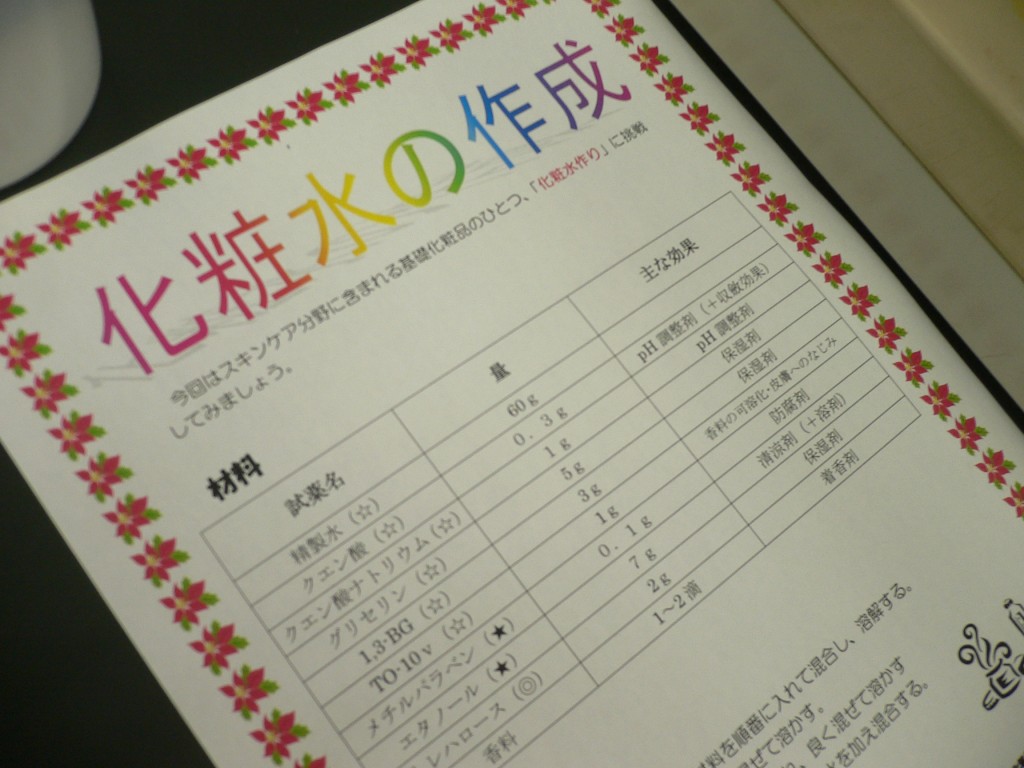 化粧水の作成
今回はスキンケア分野に含まれる基礎化粧品のひとつ、「化粧水作り」に挑戦
してみましょう。
材料
試薬名 量 主な効果
精製水（☆） 60g
クエン酸（☆） 0．3g pH調整剤（＋収斂効果）
クエン酸ナトリウム（☆） 1g pH調整剤
グリセリン（☆） 5g 保湿剤
1,3-BG（☆） 3g 保湿剤
TO-10v（☆） 1g 香料の可溶化・皮膚へのなじみ
メチルパラベン（★） 0．1g 防腐剤
エタノール（★） 7g 清涼剤（＋溶剤）
トレハロース（◎） 2g 保湿剤
香料 1～2滴 着香剤
料を順番に入れて混合し、溶解する。
混ぜて溶かす。
、良く混ぜて溶かす
を加え混合する。